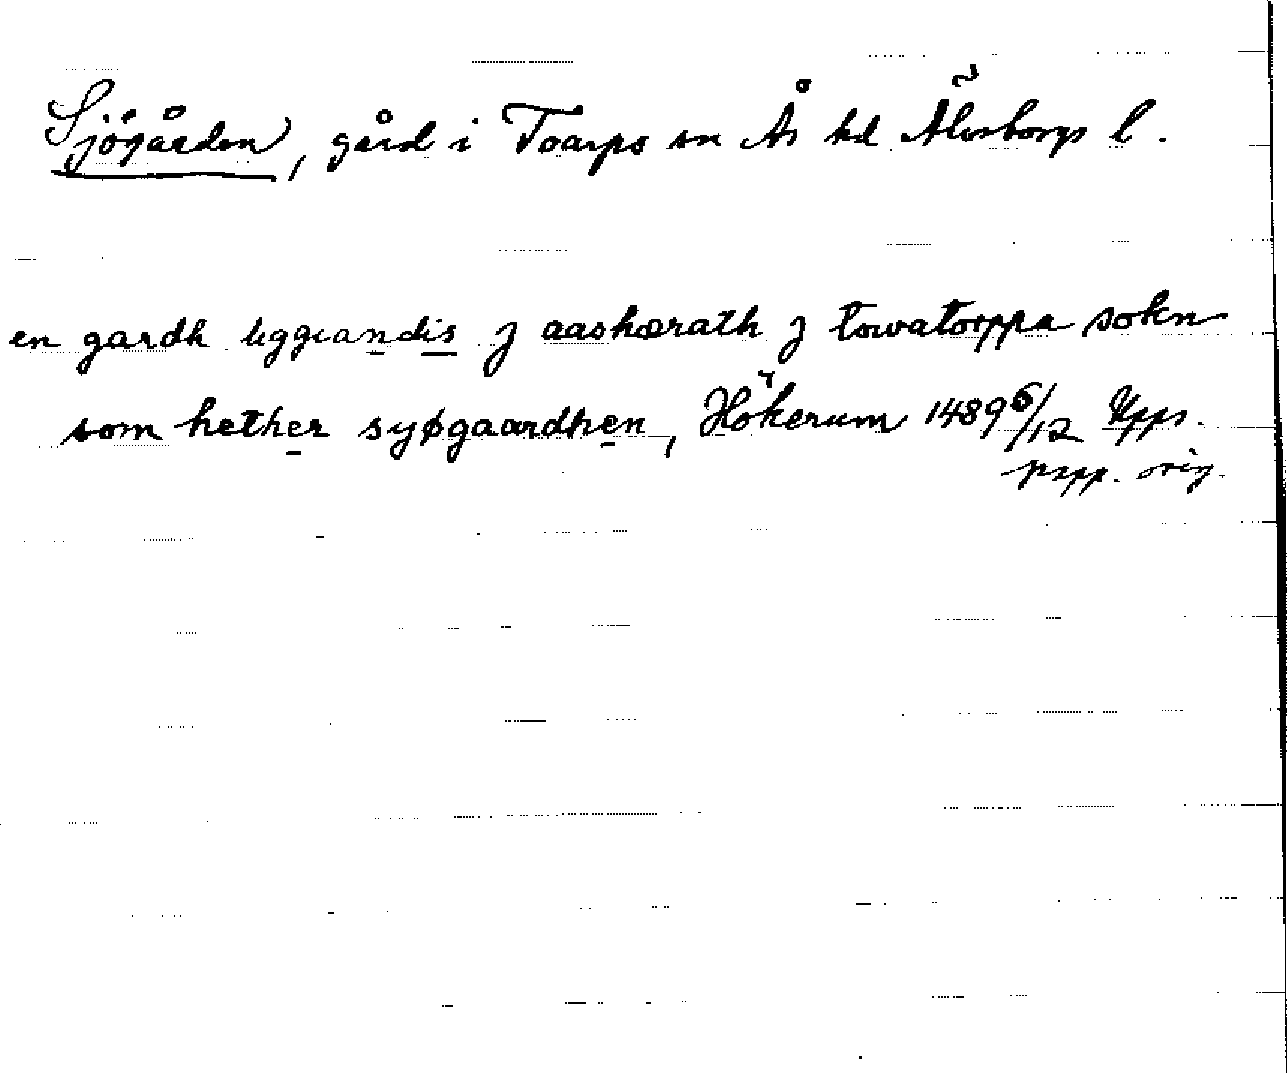 Sjögården, gård i Toarps sn Ås hd Älvsborgs l.
en gardh liggiandis j aashærath j towatorppa sokn
som hether syøgaardhen, Hökerum 1489 6/12 Upps.
papp. orig.